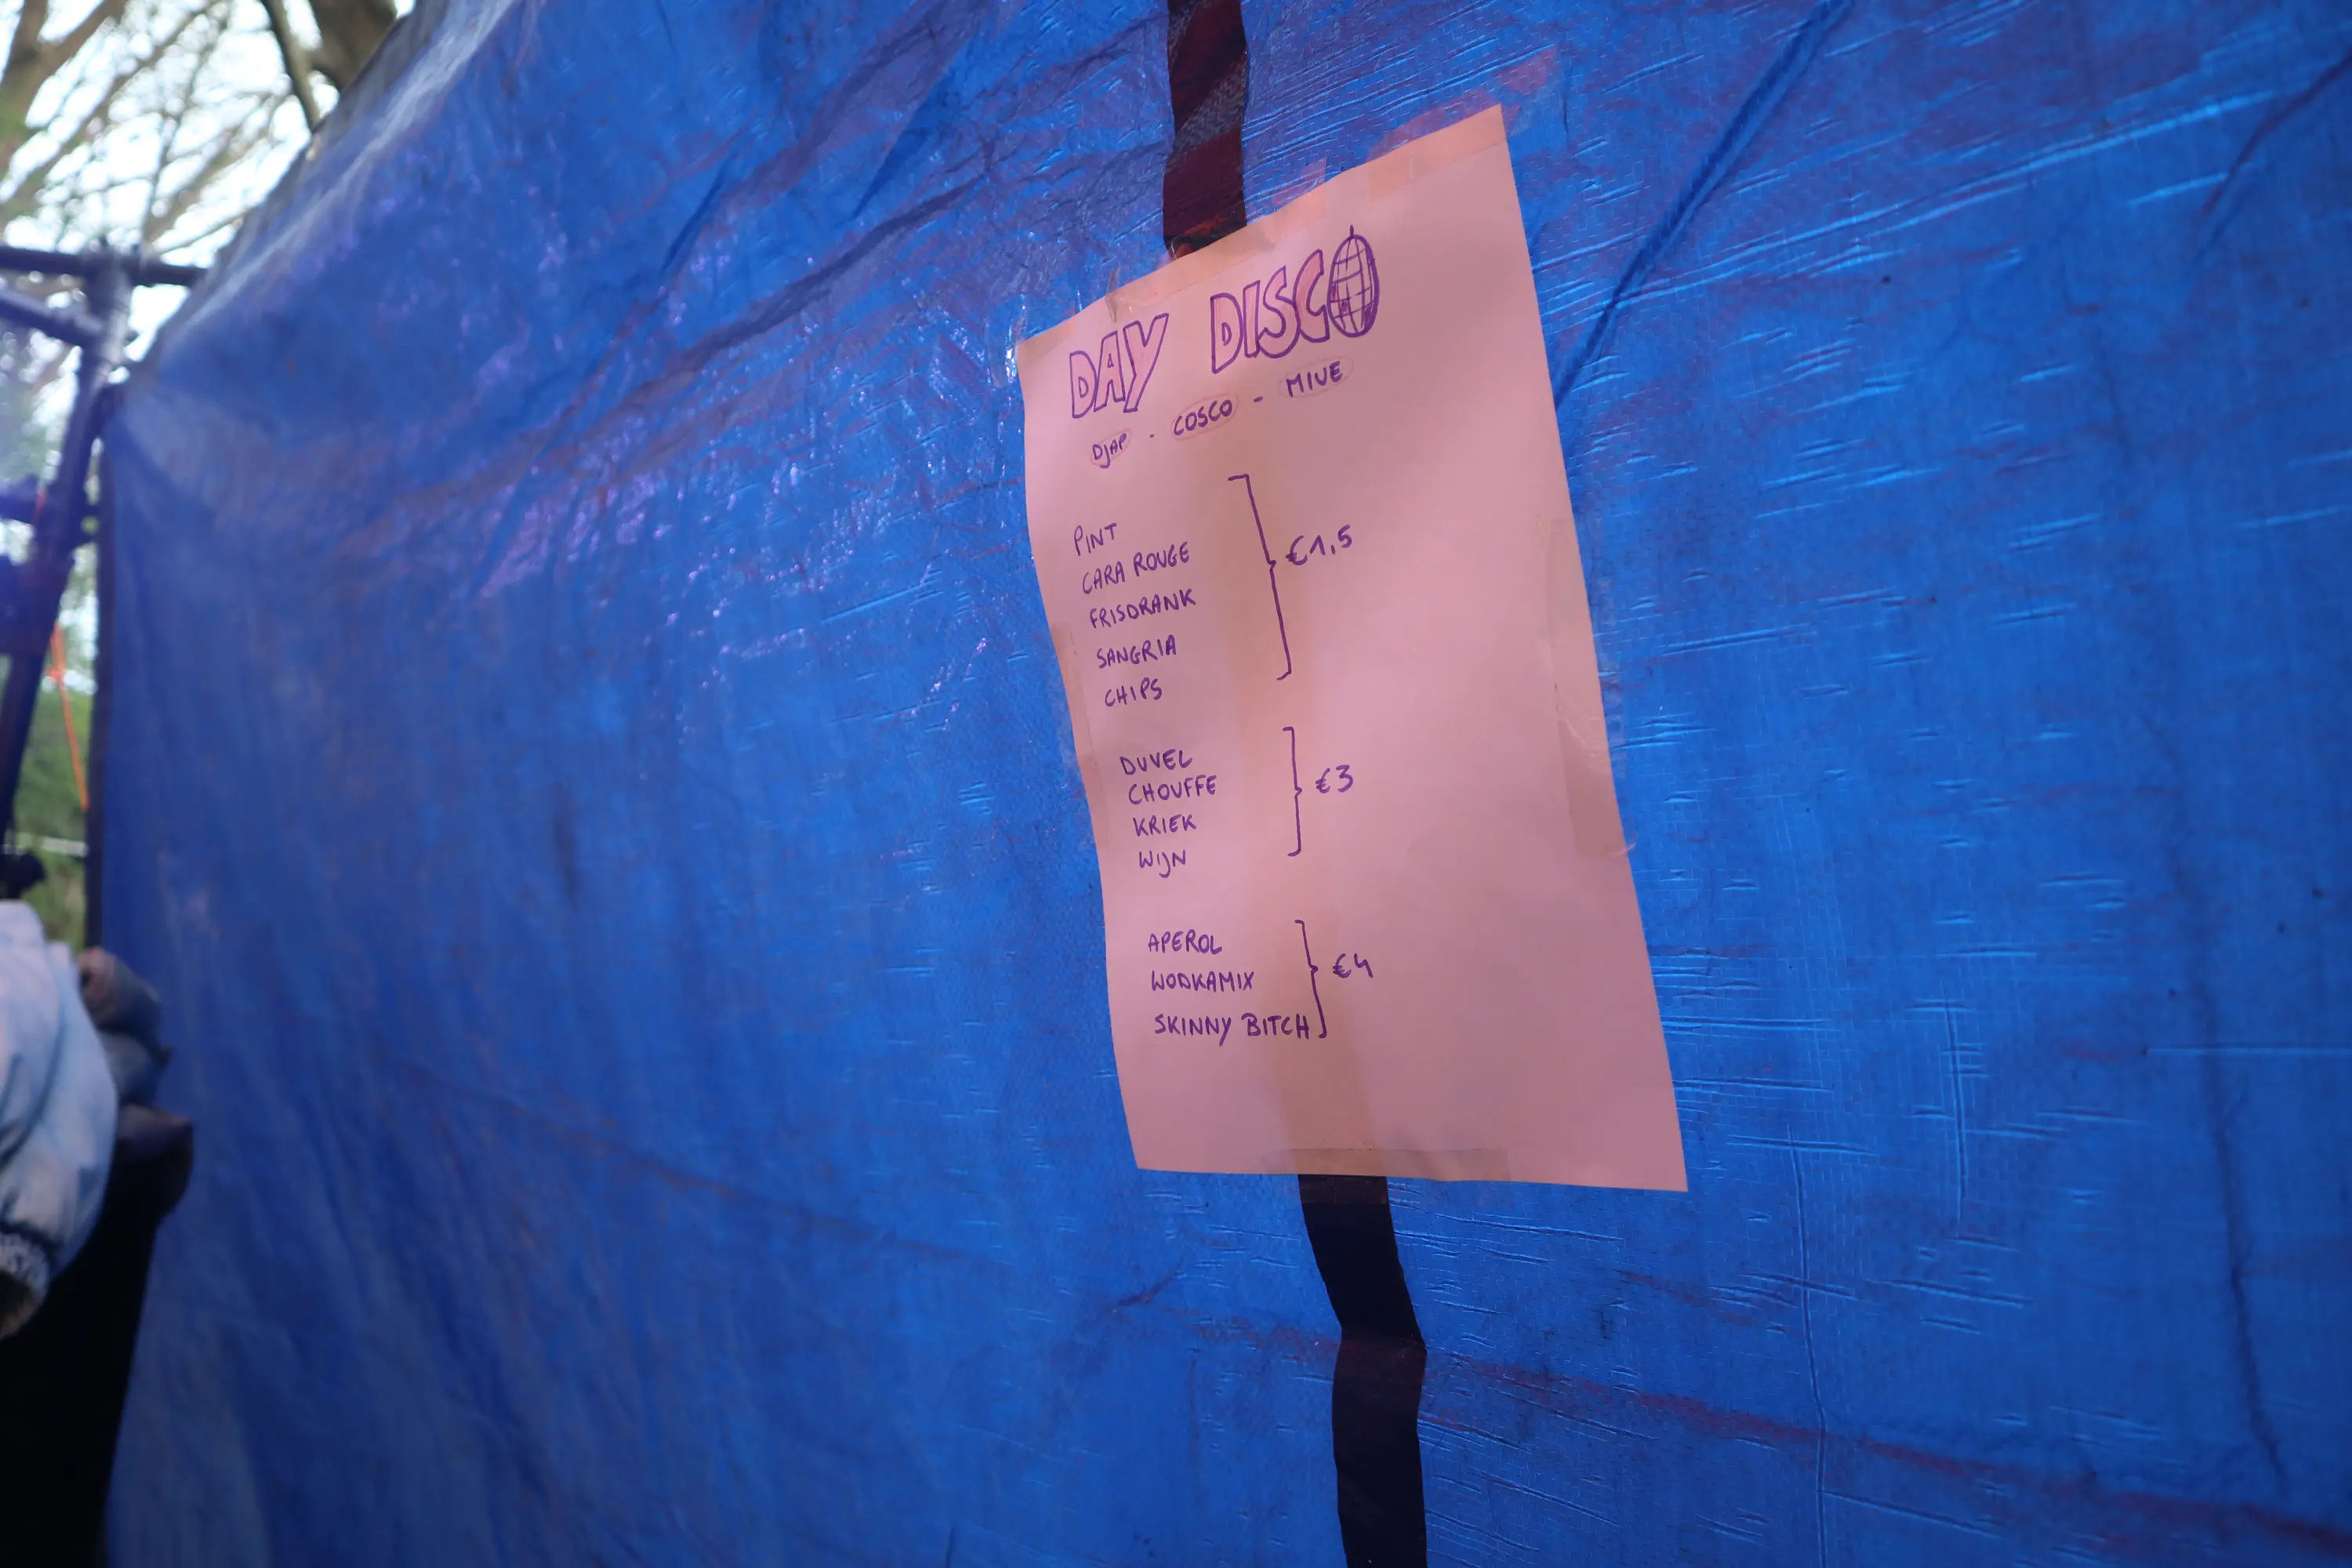 DAY DISCO
DJAP - COSCO - MIVE
PINT
CARA ROUGE
FRISDRANK
SANGRIA
CHIPS
€1,5
DUVEL
CHOUFFE
KRIEK
WIJN
€3
APEROL
WODKAMIX
SKINNY BITCH
€4